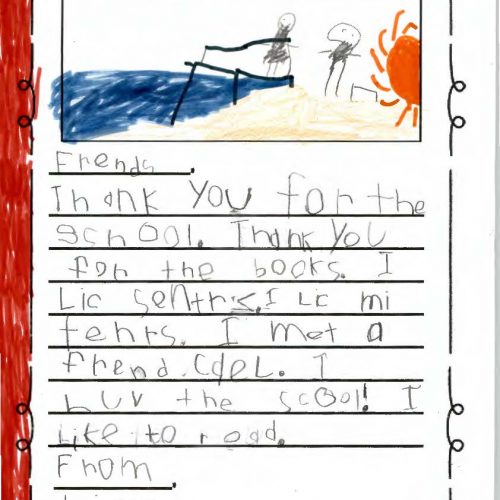 Frends,
Thank you for the
school. Thank You
for the books. I
Lic sentrs. I Lic mi
tehrs. I met a
frend. Cdel. I
Luv the scool! I
Like to read.
From,